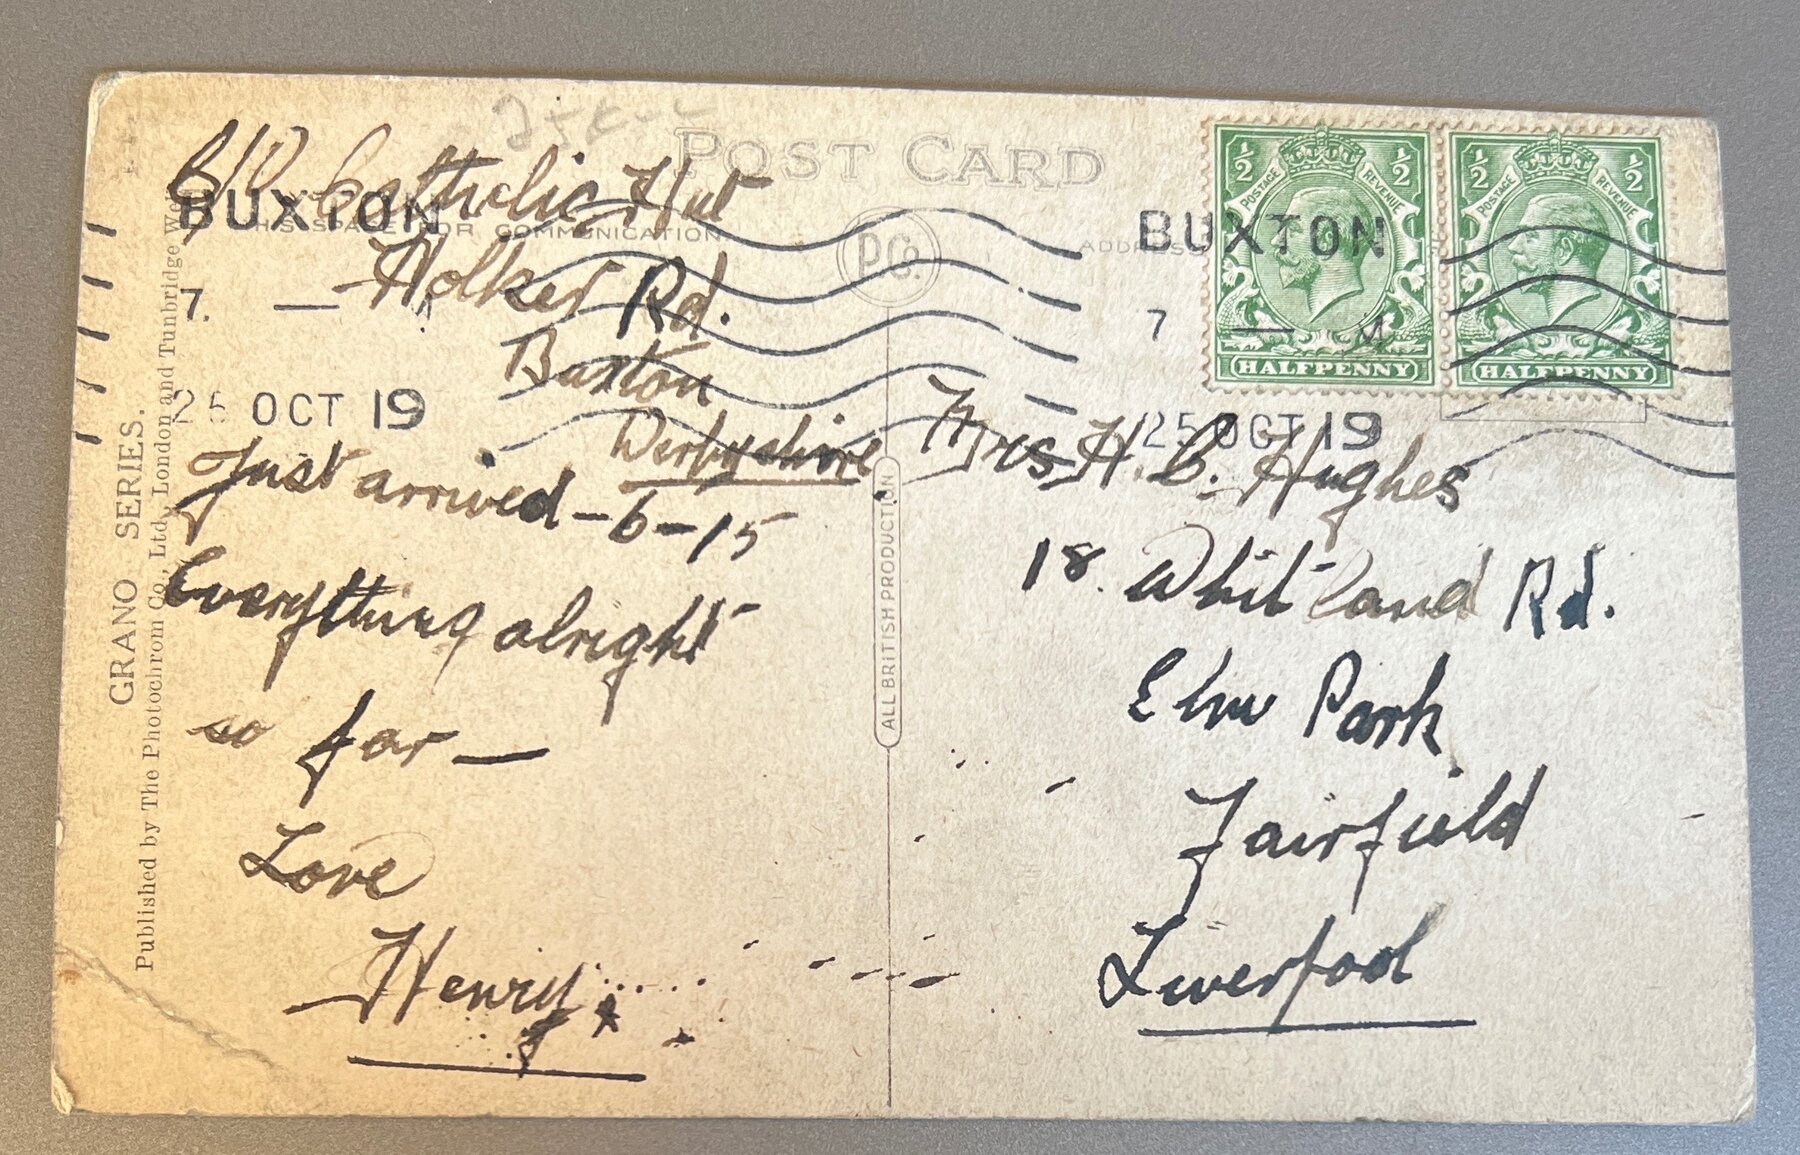 POST CARD
THIS SPACE FOR COMMUNICATION.
ADDRESS
P.Co.
C/O Catholic Hut
Holker Rd.
Buxton
Derbyshire
Just arrived – 6 – 15
Everything alright
so far —
Love
Henry
BUXTON
7. —
25 OCT 19
BUXTON
7 — M
25 OCT 19
½ ½
POSTAGE REVENUE
HALFPENNY
½ ½
POSTAGE REVENUE
HALFPENNY
Mrs H. C. Hughes
18. Whitland Rd.
Elm Park
Fairfield
Liverpool
ALL BRITISH PRODUCTION
GRANO SERIES.
Published by The Photochrom Co., Ltd., London and Tunbridge